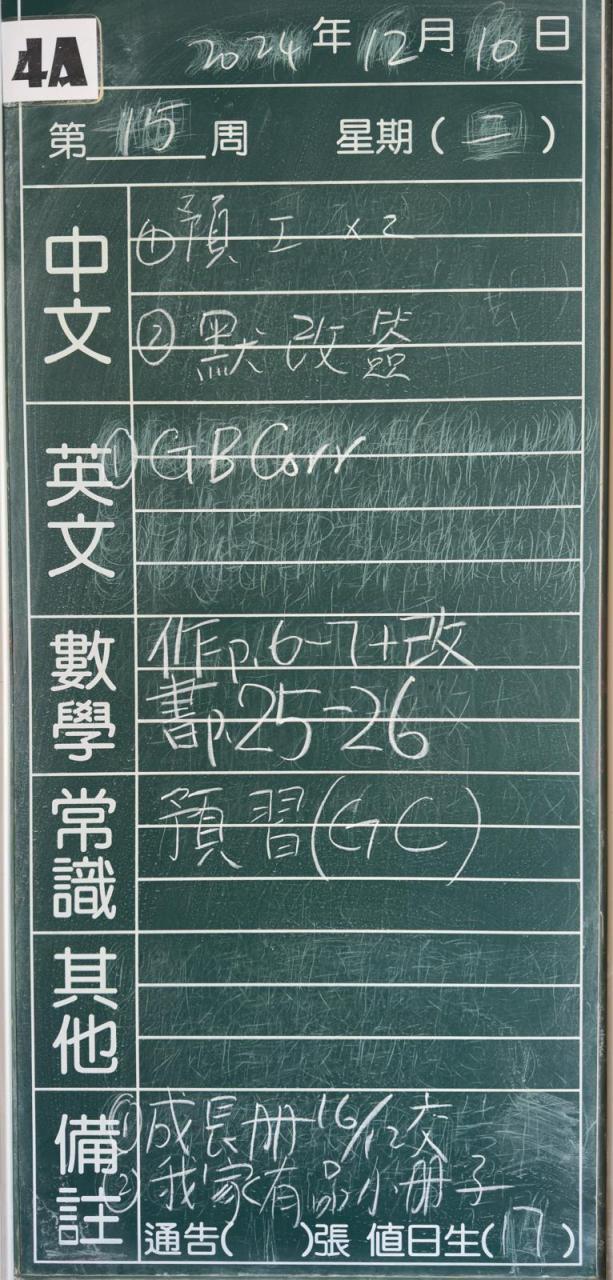 4A
2024年12月10日
第15周 星期(二)
中文
①預工 x2
②默改簽
英文
①GB Corr
數學
作p.6-7+改
書p.25-26
常識
預習(GC)
其他
備註
①成長册16/12交
②我家有品小册子
通告( )張 值日生(7)